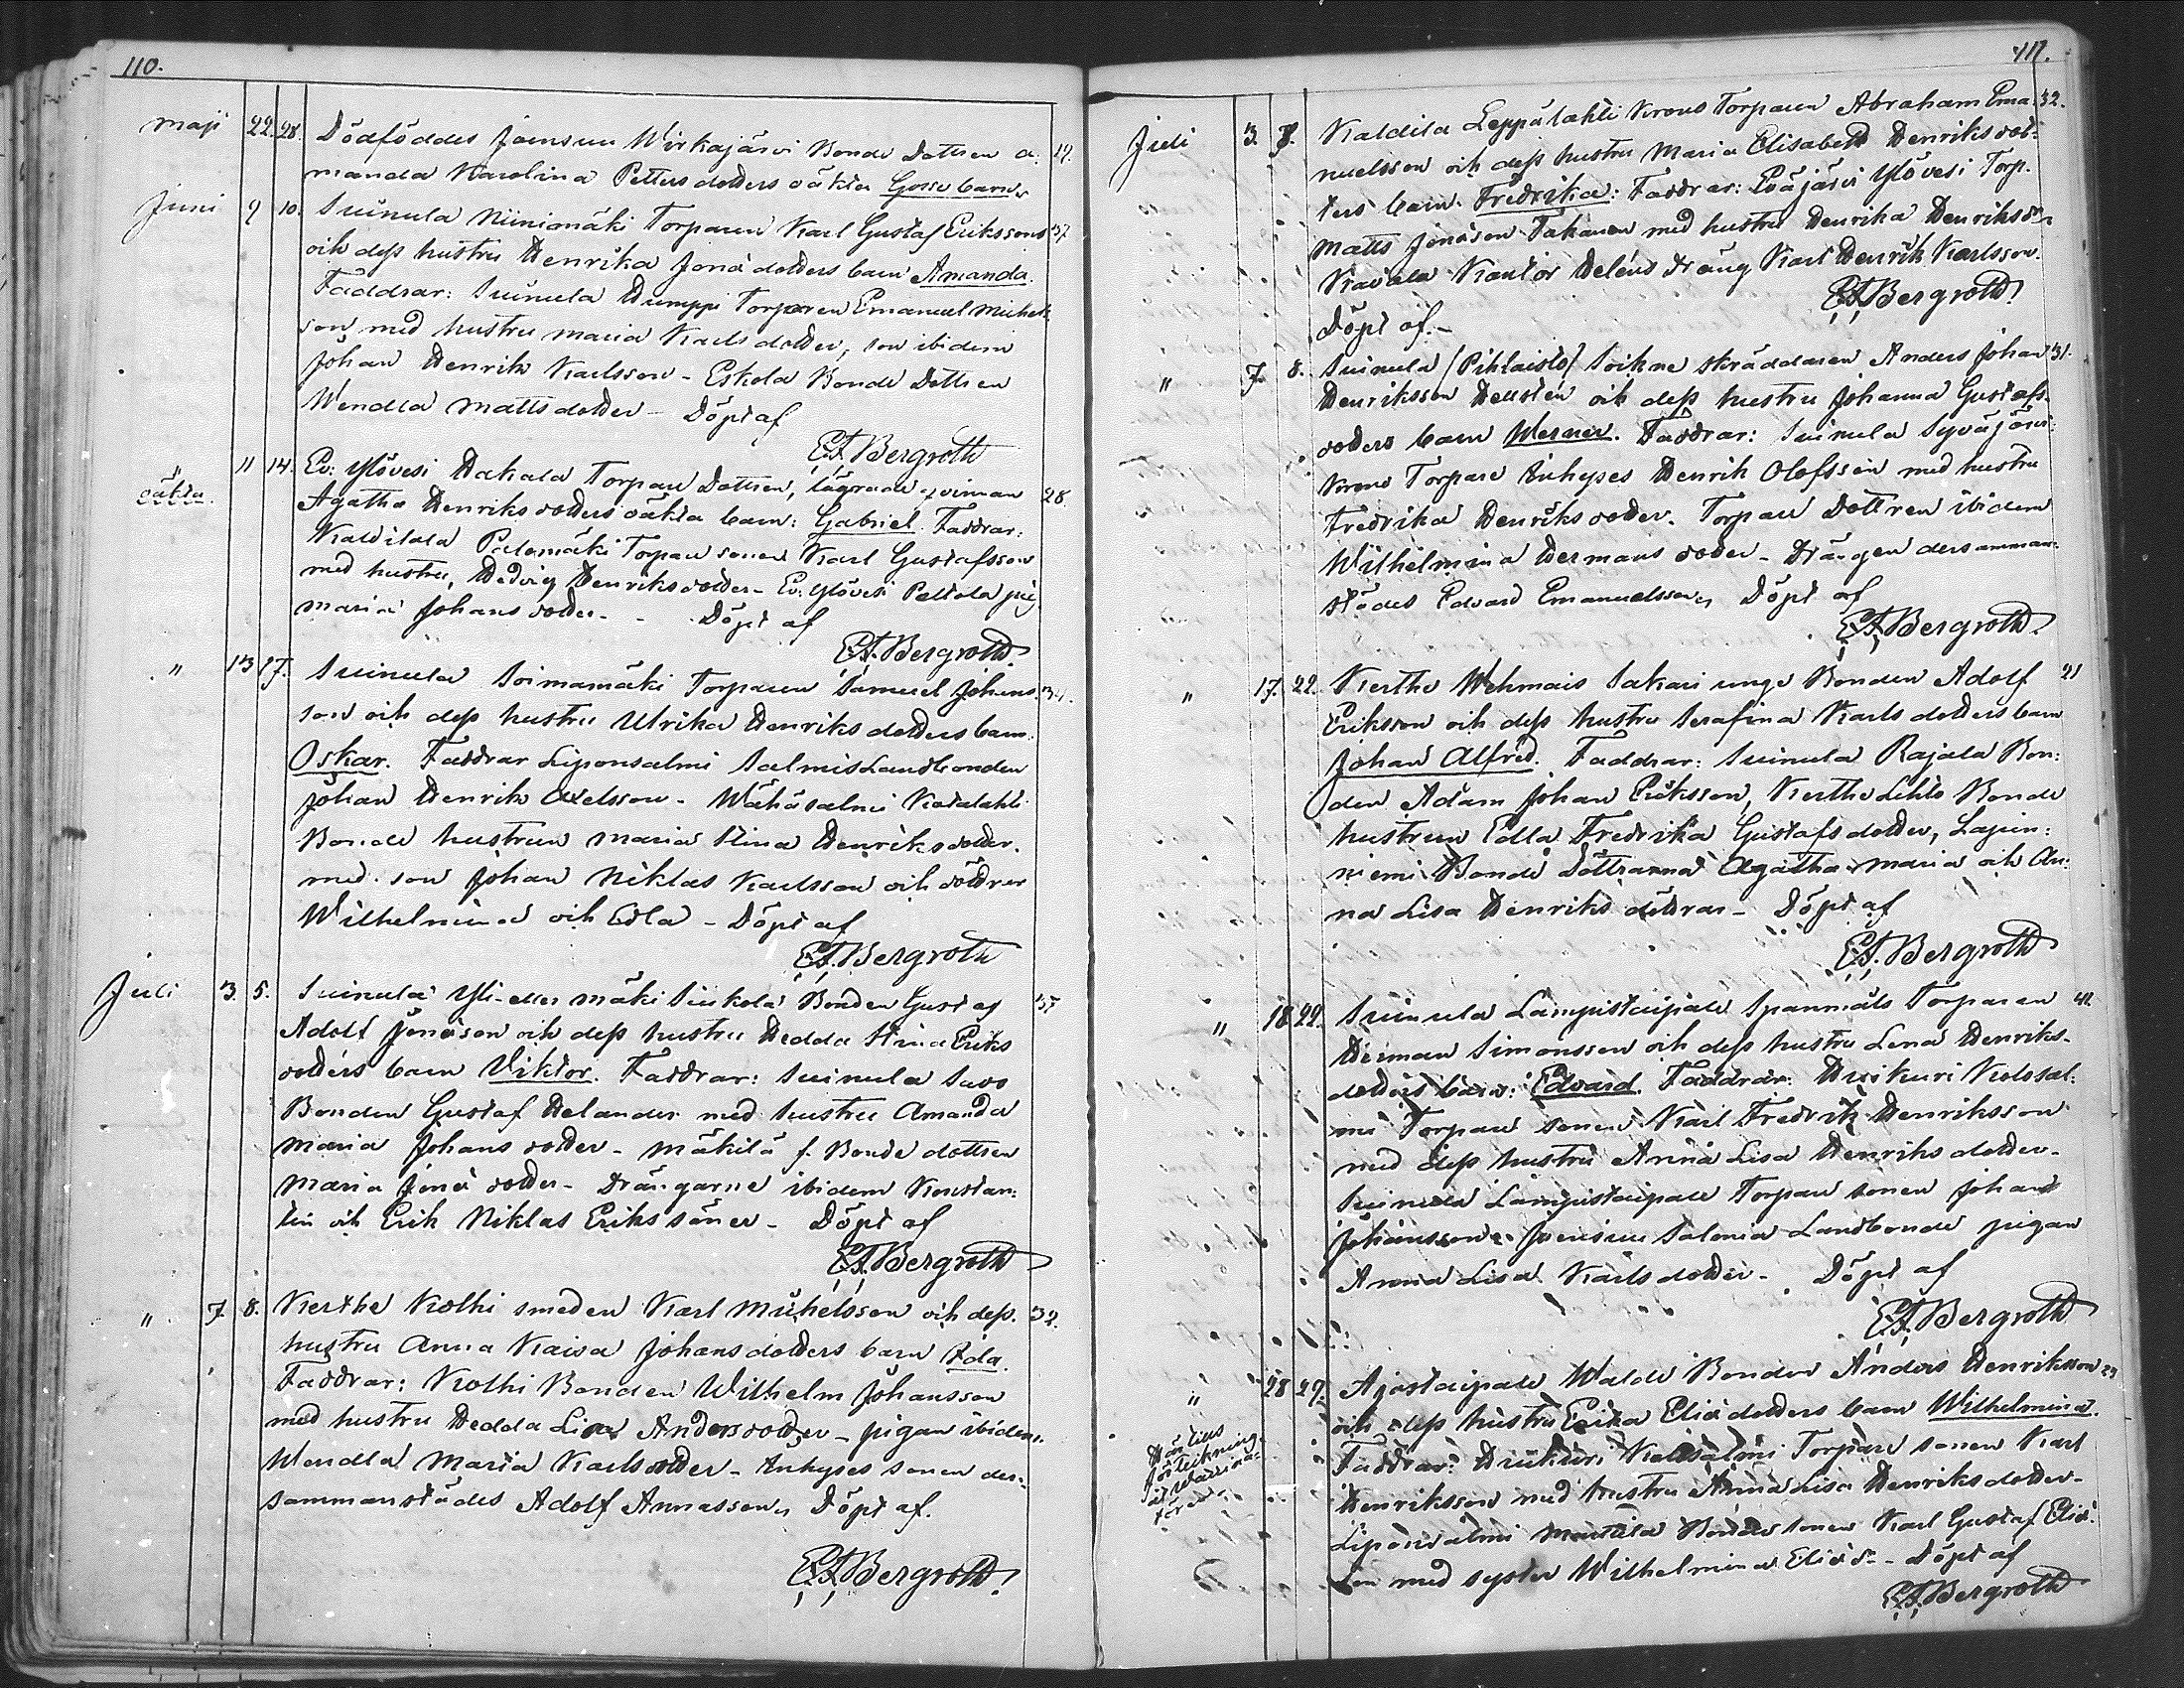 110.
Maji 22. 28. Dödföddes Joensuu Wirkajärvi Bonde Dottren A: 19.
manda Karolina Petters dotters oäkta Gossebarn
Juni 9 10. Suinula Niinimäki Torparen Karl Gustaf Erikssons 37
och dess hustru Henrika Jonä dotters barn Amanda.
Faddrar: Suinula Humppi Torparen Emanuel Michels
son med hustru Maria Karls dotter, son ibidem
Johan Henrik Karlsson - Eskola Bonde Dottren
Wendla Matts dotter - Döpt af
E.F. Bergroth
" 11 14. Ev: Ylövesi Hakala Torpare Dottren, lägrade qvinnan 28.
oäkta. Agatha Henriks dotters oäkta barn: Gabriel. Faddrar:
Palomäki Torpare sonen Karl Gustafsson
med hustru, Hedvig Henriks dotter - Ev: Ylövesi Peltola pig
Maria Johans dotter - Döpt af
E.F. Bergroth.
" 13 17. Suinula Soimamäki Torparen Samuel Johans 34.
son och dess hustru Ulrika Henriks dotters barn:
Oskar. Faddrar Liponsalmi Salmis Landbonden
Johan Henrik Axelsson - Wähäsalmi
Bonde hustrun Maria Stina Henriks dotter.
med son Johan Niklas Karlsson och döttrar
Wilhelmina och Edla - Döpt af
E.F. Bergroth
Juli 3. 5. Suinula Yli-eller mäki Siukola Bonden Gustaf 37
Adolf Jonäson och dess hustru Hedda Stina Eriks
dotters barn Viktor. Faddrar: Suinula Savo
Bonden Gustaf Helander med hustru Amanda
Maria Johans dotter - Mäkilä f. Bonde dottren
Maria Jonä dotter - Drängarne ibidem Konstan:
tin och Erik Niklas Eriks söner - Döpt af
E.F. Bergroth
" 7. 8. Kerthe Kolhi smeden Karl Michelsson och dess 32.
hustru Anna Kaisa Johans dotters barn Ida.
Faddrar: Kolhi Bonden Wilhelm Johansson
med hustru Hedda Lisa Anders dotter - pigan ibidem
Wendla Maria Karls dotter - Inhyses sonen der-
sammanstädes Adolf Annasson, Döpt af.
E.F. Bergroth.
111.
Juli 3. 8. Leppälahti Krono Torparen Abraham Ema: 32.
nuelsson och dess hustru Maria Elisabeth Henriks dot-
ters barn. Fredrika: Faddrar: Ylövesi Torp.
Matts Jonäson Takanen med hustru Henrika Henriksdr
Kantor Heléns dräng Karl Henrik Karlsson.
Döpt af. -
E.F. Bergroth.
" 7. 8. Suinula (Pihlaisto) Sockne skräddaren Anders Johan 31.
Henriksson Hellstén och dess hustru Johanna Gustafs-
dotters barn Werner. Faddrar: Suinula Syväjärvi
Krono Torpare Inhyses Henrik Olofsson med hustru
Fredrika Henriks dotter. Torpare Dottren ibidem
Wilhelmina Hermans dotter - Drängen dersamman-
städes Edvard Emanuelsson, Döpt af
E.F. Bergroth.
" 17. 22. Kerthe Wehmais Sakari unge Bonden Adolf 21
Eriksson och dess hustru Serafina Karls dotters barn
Johan Alfred. Faddrar: Suinula Rajala Bon:
den Adam Johan Eriksson, Kerthe Lehto Bonde
hustrun Edla Fredrika Gustafs dotter, Lapin:
niemi Bonde Döttrarna Agatha Maria och An:
na Lisa Henriks döttrar - Döpt af
E.F. Bergroth
" 18 22. Suinula Lampistaipale Spannmåls Torparen 41.
Herman Simonsson och dess hustru Lena Henriks-
dotters barn: Edvard. Faddrar: Huikuri Kolosal:
mi Torpare sonen Karl Fredrik Henriksson
med dess hustru Anna Lisa Henriks dotter -
Suinula Lampistaipale Torpare sonen Johan
Johansson - Joensuu Salonia Landbonde pigan
Anna Lisa Karls dotter - Döpt af
E.F. Bergroth
" 28 29. Ajostaipale Walde Bonden Anders Henriksson 29
och dess hustru Erika Eliä dotters barn Wilhelmina.
Faddrar: Huikuri Kolosalmi Torpare sonen Karl
Henriksson med hustru Anna Lisa Henriks dotter -
Liponsalmi Mattila Bonde sonen Karl Gustaf Eliä:
son med syster Wilhelmina Eliä d. - Döpt af
E.F. Bergroth
Här tills